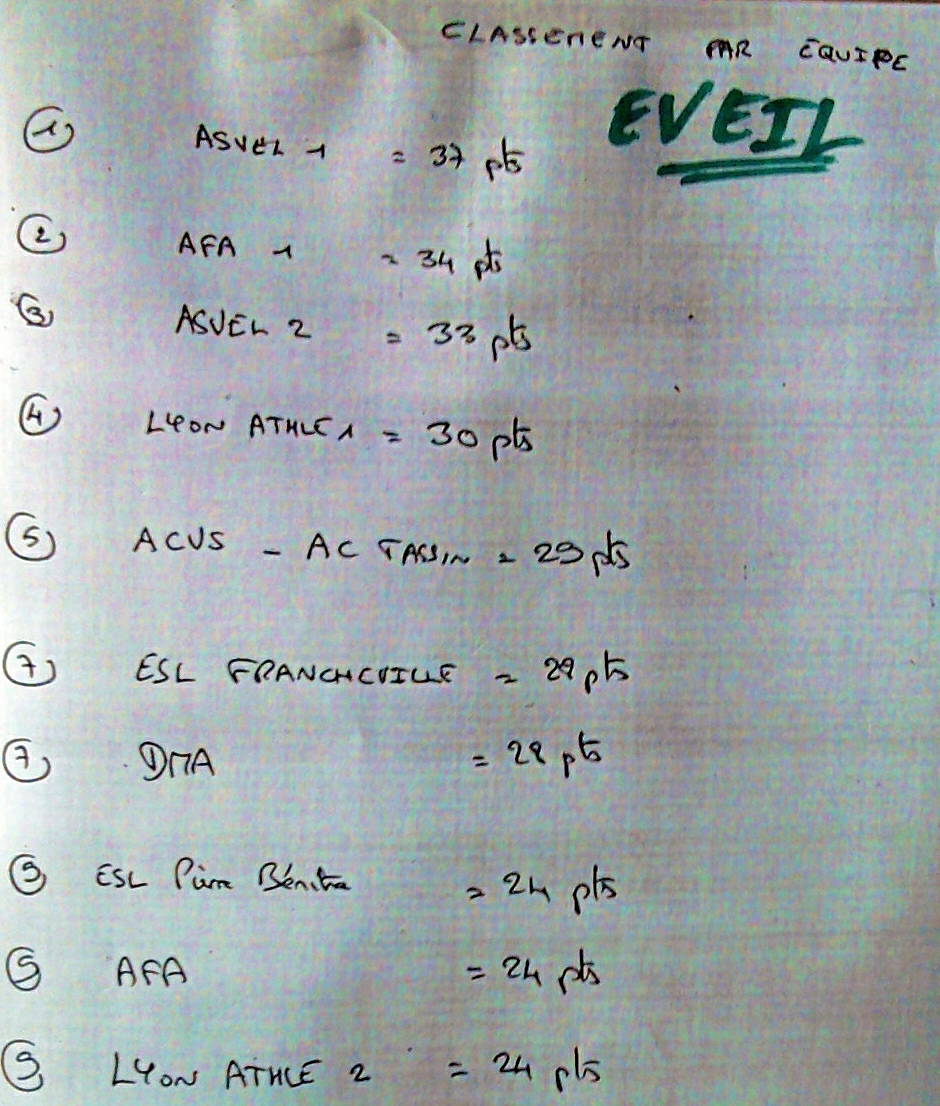 CLASSEMENT PAR EQUIPE
EVEIL
1 ASVEL 1 = 37 pts
2 AFA 1 = 34 pts
3 ASVEL 2 = 33 pts
4 LYON ATHLE 1 = 30 pts
5 ACVS - AC TASSIN = 29 pts
7 ESL FRANCHEVILLE = 28 pts
7 DMA = 28 pts
9 ESL Pierre Bénite = 24 pts
9 AFA = 24 pts
9 LYON ATHLE 2 = 24 pts